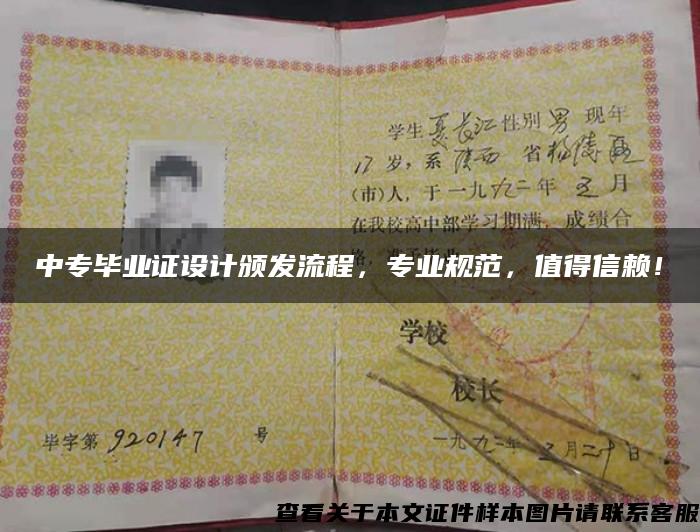 学生夏长江性别男现年
17岁，系陕西省杨陵区
（市）人，于一九九二年五月
在我校高中部学习期满，成绩合
格，准予毕业
中专毕业证设计颁发流程，专业规范，值得信赖！
学校
校长
毕字第920147号
一九九二年五月二十日
查看关于本文证件样本图片请联系客服